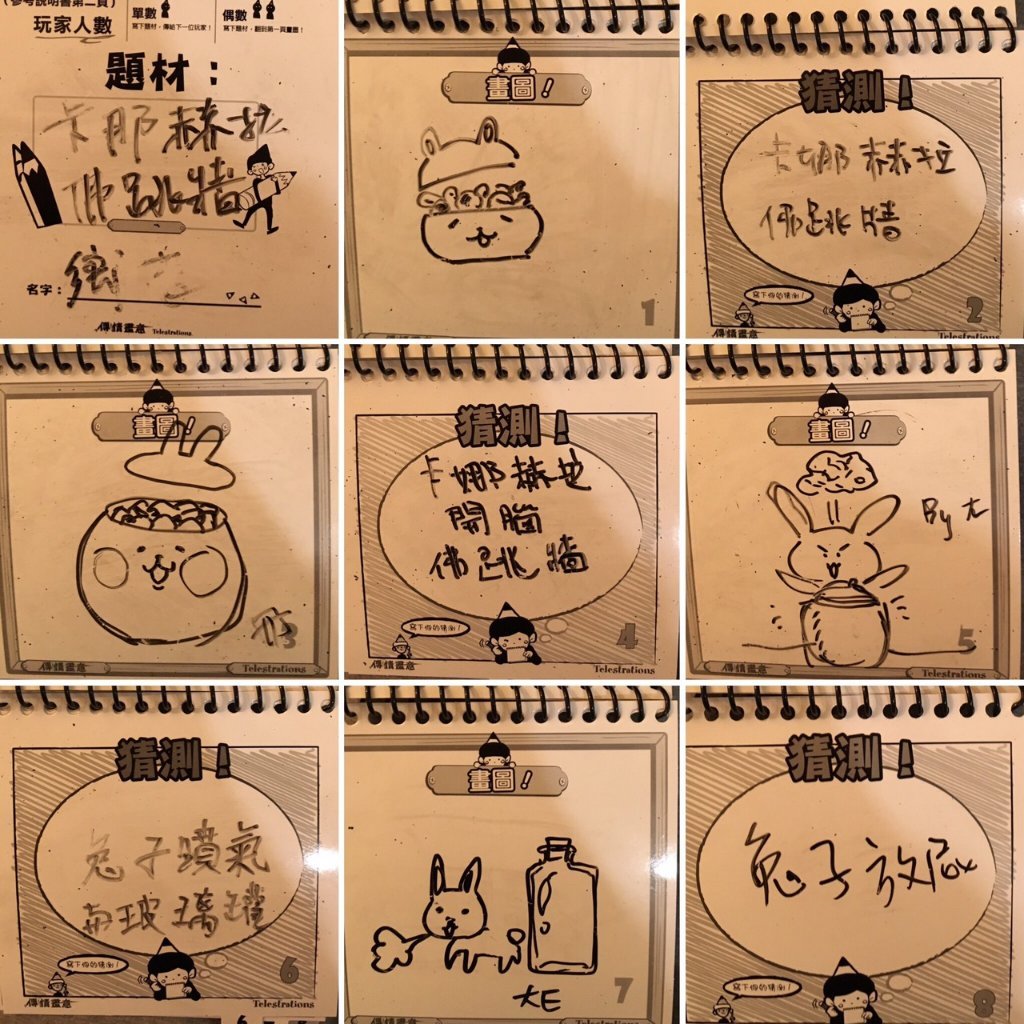 (參考說明書第二頁)
玩家人數
單數
寫下題材,傳給下一位玩家!
偶數
寫下題材,翻到第一頁畫圖!
題材:
卡那赫拉
佛跳牆
名字:
傳情畫意 Telestrations
畫圖!
1
猜測!
卡娜赫拉
佛跳牆
寫下你的猜測!
2
傳情畫意 Telestrations
畫圖!
3
傳情畫意 Telestrations
猜測!
卡娜赫拉
開腦
佛跳牆
寫下你的猜測!
4
傳情畫意 Telestrations
畫圖!
By
5
傳情畫意 Telestrations
猜測!
兔子噴氣
玻璃罐
寫下你的猜測!
6
傳情畫意 Telestrations
畫圖!
大E
7
猜測!
兔子放屁
寫下你的猜測!
8
傳情畫意